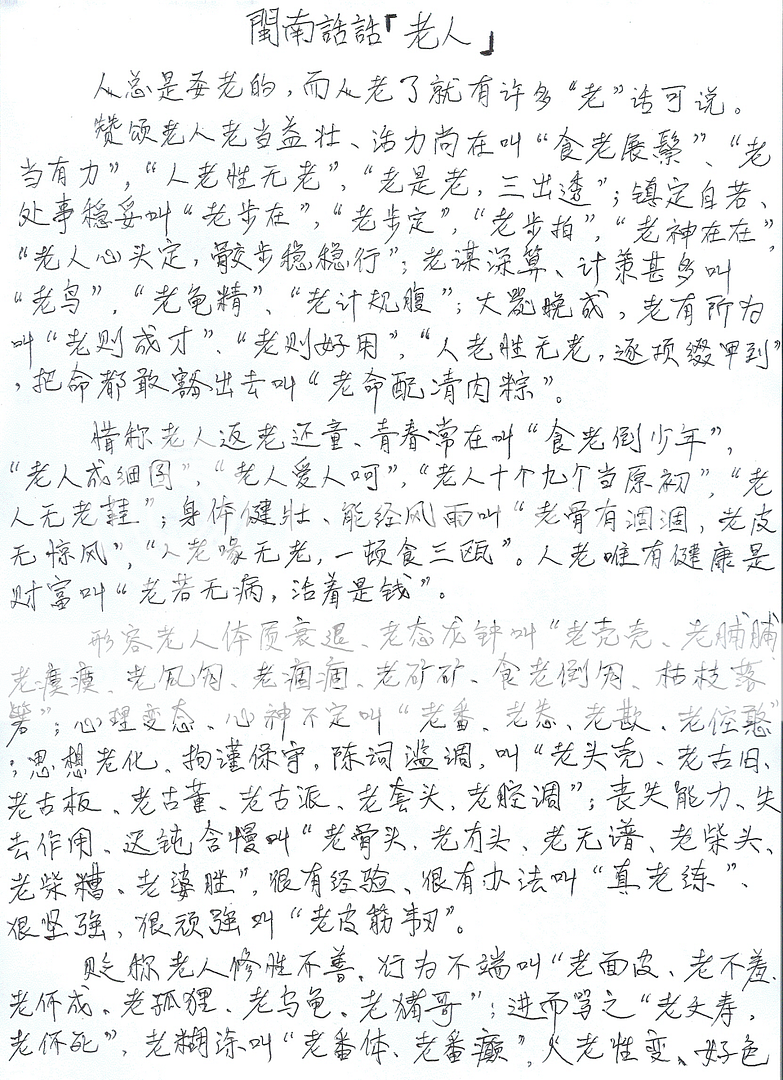 閩南話話「老人」
人总是要老的，而人老了就有许多“老”话可说。
赞颂老人老当益壮、活力尚在叫“食老展鬃”、“老
当有力”，“人老性无老”，“老是老，三出透”；镇定自若、
处事稳妥叫“老步在”，“老步定”，“老步拍”，“老神在在”，
“老人心头定，骹步稳稳行”；老谋深算、计策甚多叫
“老鸟”，“老龟精”、“老计规腹”；大器晚成，老有所为
叫“老则成才”、“老则好用”，“人老性无老，逐项缀甲到”
，把命都敢豁出去叫“老命配凊肉粽”。
惜称老人返老还童、青春常在叫“食老倒少年”，
“老人成细囝”，“老人爱人呵”，“老人十个九个当原初”，“老
人无老鞋”；身体健壮、能经风雨叫“老骨有涸涸，老皮
无惊风”，“人老喙无老，一顿食三瓯”。人老唯有健康是
财富叫“老若无病，活着是钱”。
形容老人体质衰退、老态龙钟叫“老壳壳、老脯脯
老 、老 、老痼痼、老矿矿、食老倒 、枯枝落
”；心理变态、心神不定叫“老番、老态、老歁、老倥憨”
；思想老化、拘谨保守，陈词滥调，叫“老头壳、老古旧、
老古板、老古董、老古派、老套头、老腔调”；丧失能力、失
去作用、迟钝 慢叫“老骨头、老冇头、老无谱、老柴头、
老柴糟、老婆胜”，很有经验、很有办法叫“真老练”、
很坚强，很顽强叫“老皮筋韧”。
贬称老人修性不善，行为不端叫“老面皮、老不羞、
老怀成、老狐狸、老乌龟、老猪哥”；进而骂之“老夭寿，
老怀死”，老糊涂叫“老番体、老番癫”，人老性变、好色